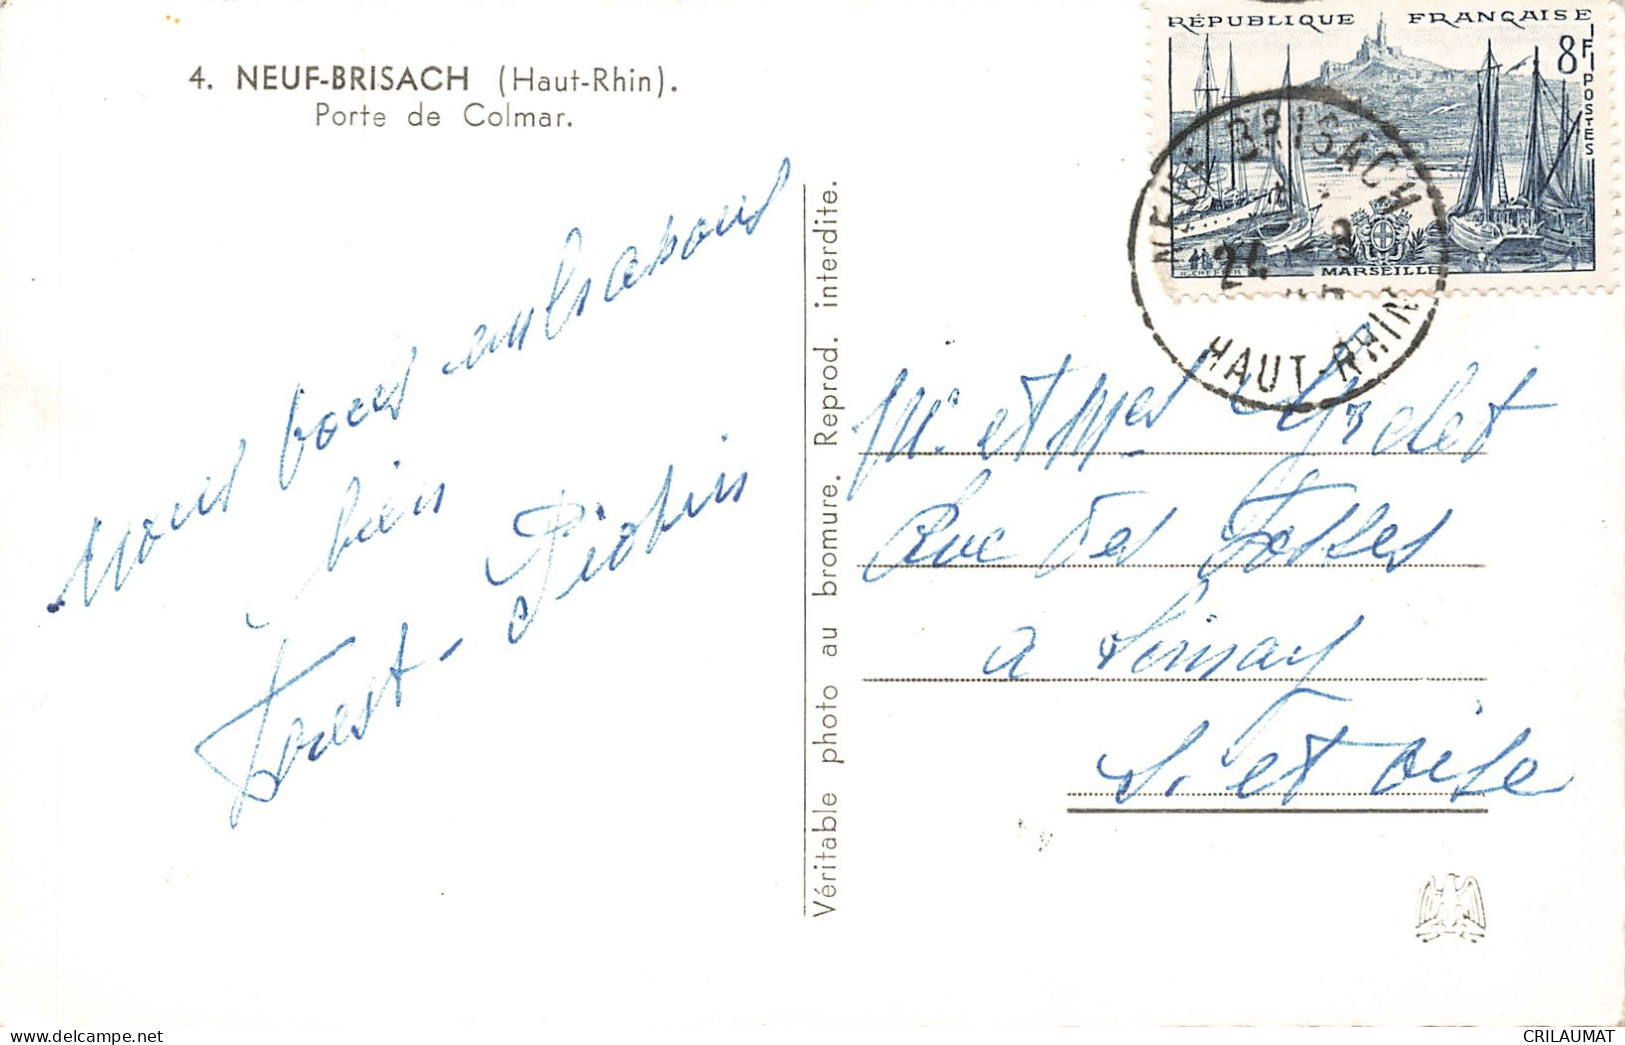 4. NEUF-BRISACH (Haut-Rhin).
Porte de Colmar.
Nous vous embrassons
bien
Forest-
Véritable photo au bromure. Reprod. interdite.
RÉPUBLIQUE FRANÇAISE
8F
POSTES
MARSEILLE
NEUF BRISACH
24 - 8
HAUT-RHIN
M. et Mes
Rue des Fosses
a
S. et Oise
delcampe.net
CRILAUMAT